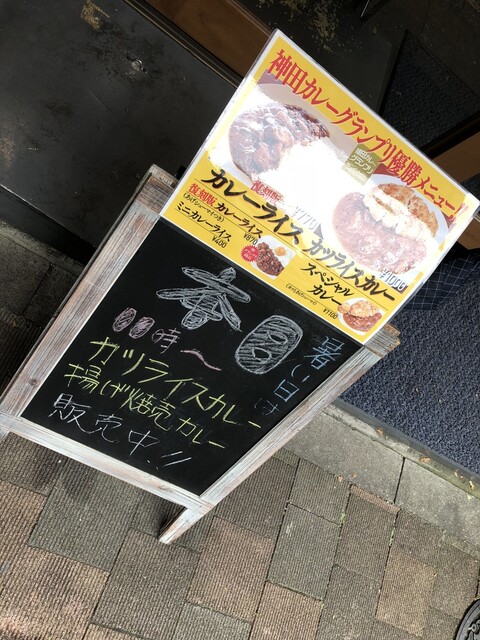 神田カレーグランプリ優勝メニュー
復刻版
カレーライス
¥770
カツライスカレー
¥1000
復刻版カレーライス
¥870
ミニカレーライス
¥400
スペシャル
カレー
¥1100
暑い日は
香
時〜
カツライスカレー
揚げ焼売カレー
販売中!!